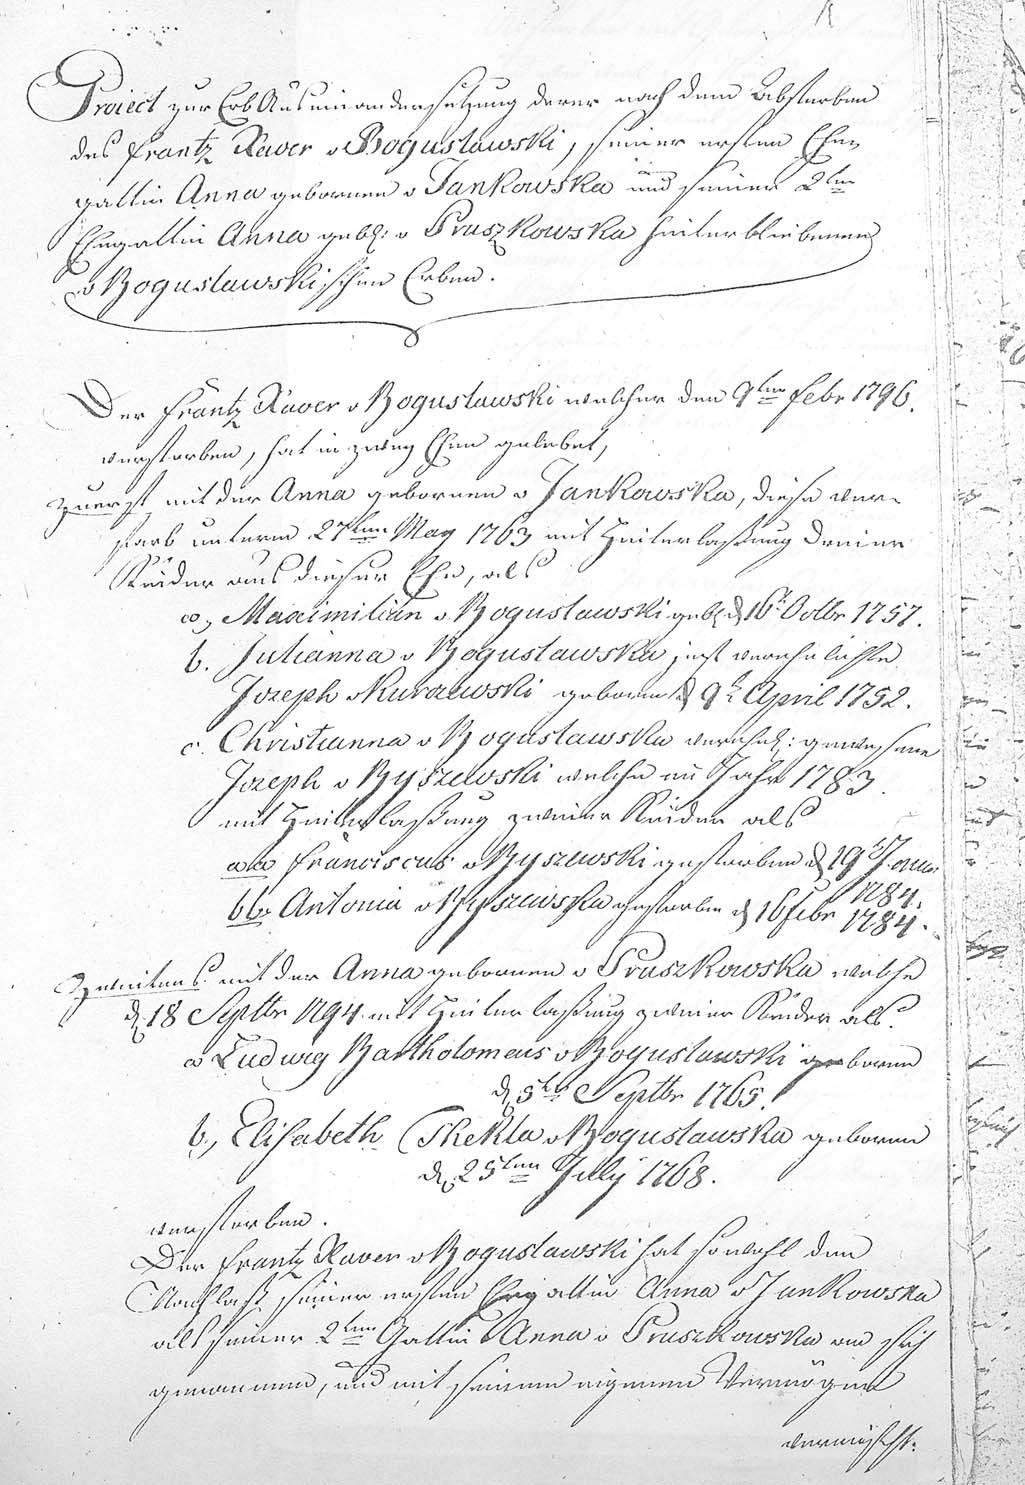 Project zur Erb Auseinandersetzung derer nach dem Absterben
des Frantz Xaver v Boguslawski, seiner ersten Ehe-
gattin Anna gebornen v Jankowska und seiner 2ten
Ehegattin Anna geb: v Pruszkowska hinterbliebenen
v Boguslawskischen Erben.
Der Frantz Xaver v Boguslawski welcher den 9ten Febr 1796.
verstorben, hat in zwey Ehen gelebet,
zuerst mit der Anna gebornen v Jankowska, diese ver-
starb unterm 27ten May 1763 mit Hinterlaßung dreier
Kinder aus dieser Ehe, als
a, Maximilian v Boguslawski geb d 16t Octbr 1757.
b. Julianna v Boguslawska jezt verehelichte
Jozeph v Kurzewski geboren d 9t April 1752.
c. Christianna v Boguslawska verehel: gewesene
Jozeph v Byszewski welche im Jahr 1783.
mit Hinterlaßung zweier Kinder als
aa Franciscus v Byszewski gestorben d 19t Januar
1784.
bb Antonia v Byszewska gestorben d 16 Febr 1784.
Zweitens mit der Anna gebornen v Pruszkowska welche
d 18 Septbr 1794 mit Hinterlaßung zweier Kinder als.
a Ludwig Bartholomeus v Boguslawski geboren
d 5ten Septbr 1765.
b, Elisabeth Thekla v Boguslawska geboren
d 25ten July 1768.
verstorben.
Der Frantz Xaver v Boguslawski hat sowohl den
Nachlaß seiner ersten Ehegattin Anna v Jankowska
als seiner 2ten Gattin Anna v Pruszkowska an sich
genommen, und mit seinem eigenen Vermögen
vermischt.